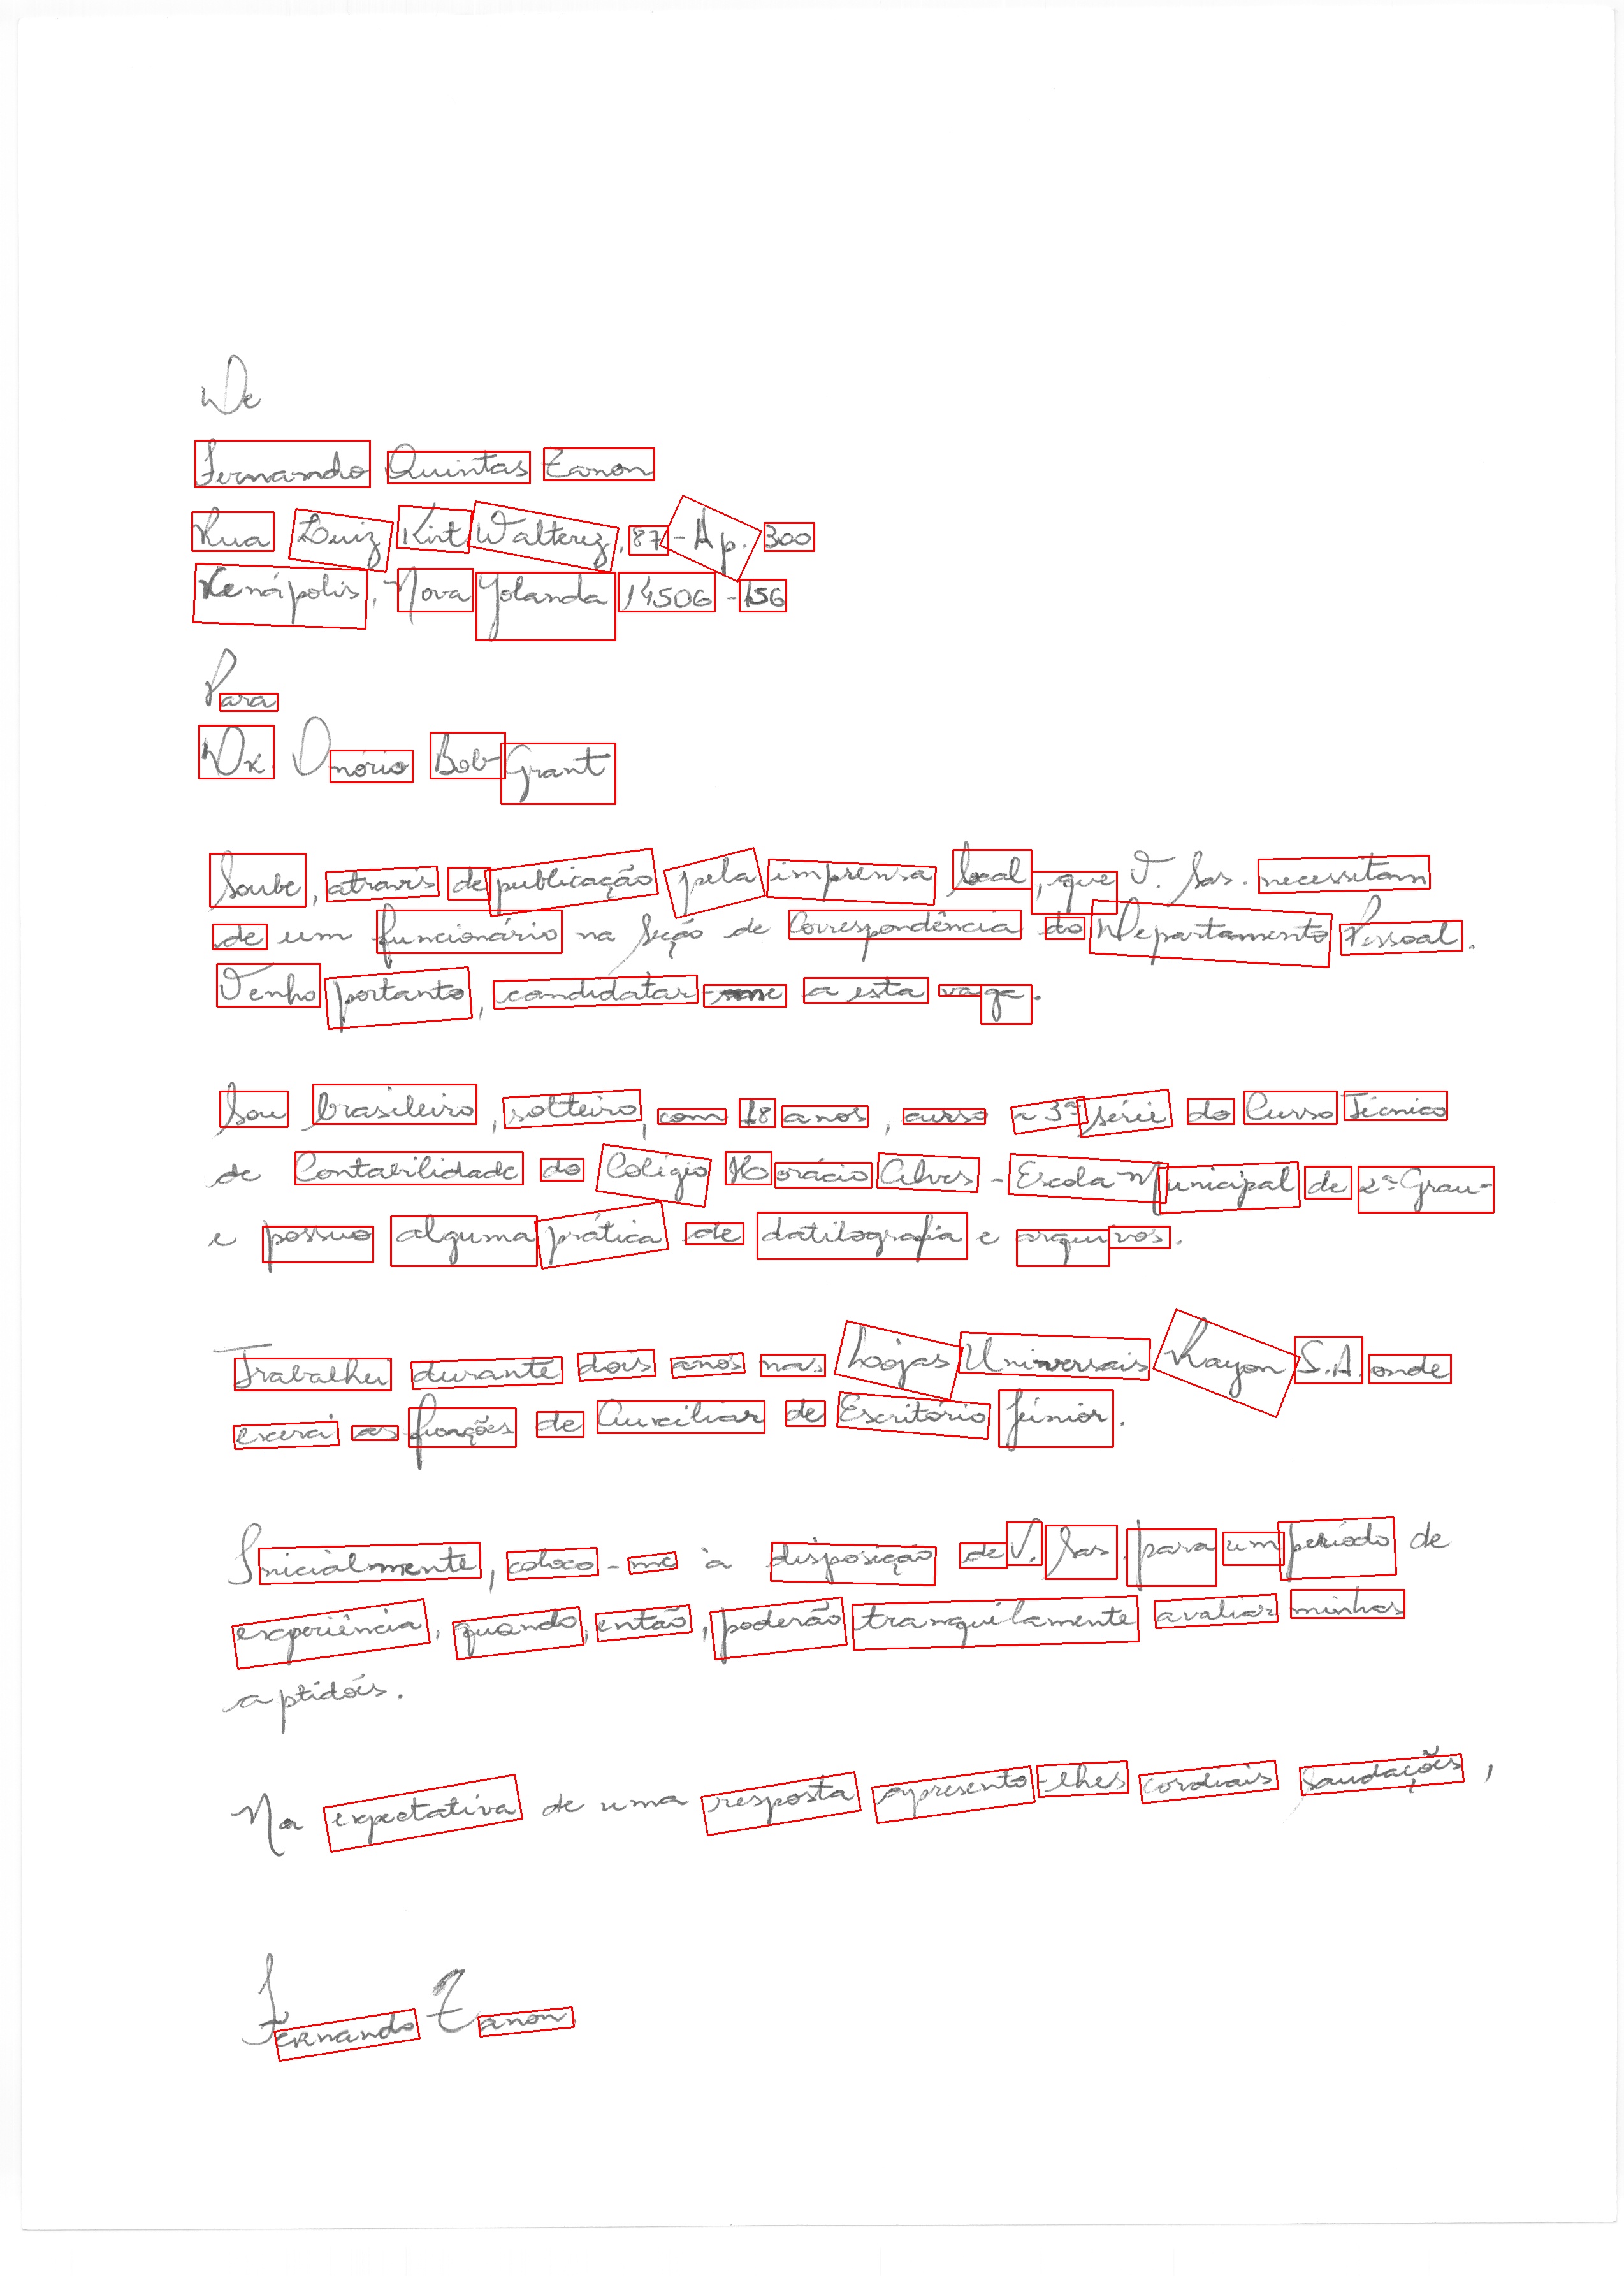 De
Fernando Quintas Zanon
Rua Luiz Kirt Walterez, 87 - Ap. 300
Xenápolis, Nova Yolanda 14506-156
Para
Dr. Onório Bob Grant
Soube, através de publicação pela imprensa local, que V. Sas. necessitam
de um funcionário na Seção de Correspondência do Departamento Pessoal.
Venho portanto, candidatar-me a esta vaga.
Sou brasileiro, solteiro, com 18 anos, curso a 3ª série do Curso Técnico
de Contabilidade do Colégio Horácio Alves - Escola Municipal de 2º Grau -
e possuo alguma prática de datilografia e arquivos.
Trabalhei durante dois anos nas Lojas Universais Rayon S.A. onde
exerci as funções de Auxiliar de Escritório Júnior.
Inicialmente, coloco-me à disposição de V. Sas. para um período de
experiência, quando, então, poderão tranquilamente avaliar minhas
aptidões.
Na expectativa de uma resposta apresento-lhes cordiais saudações,
Fernando Zanon